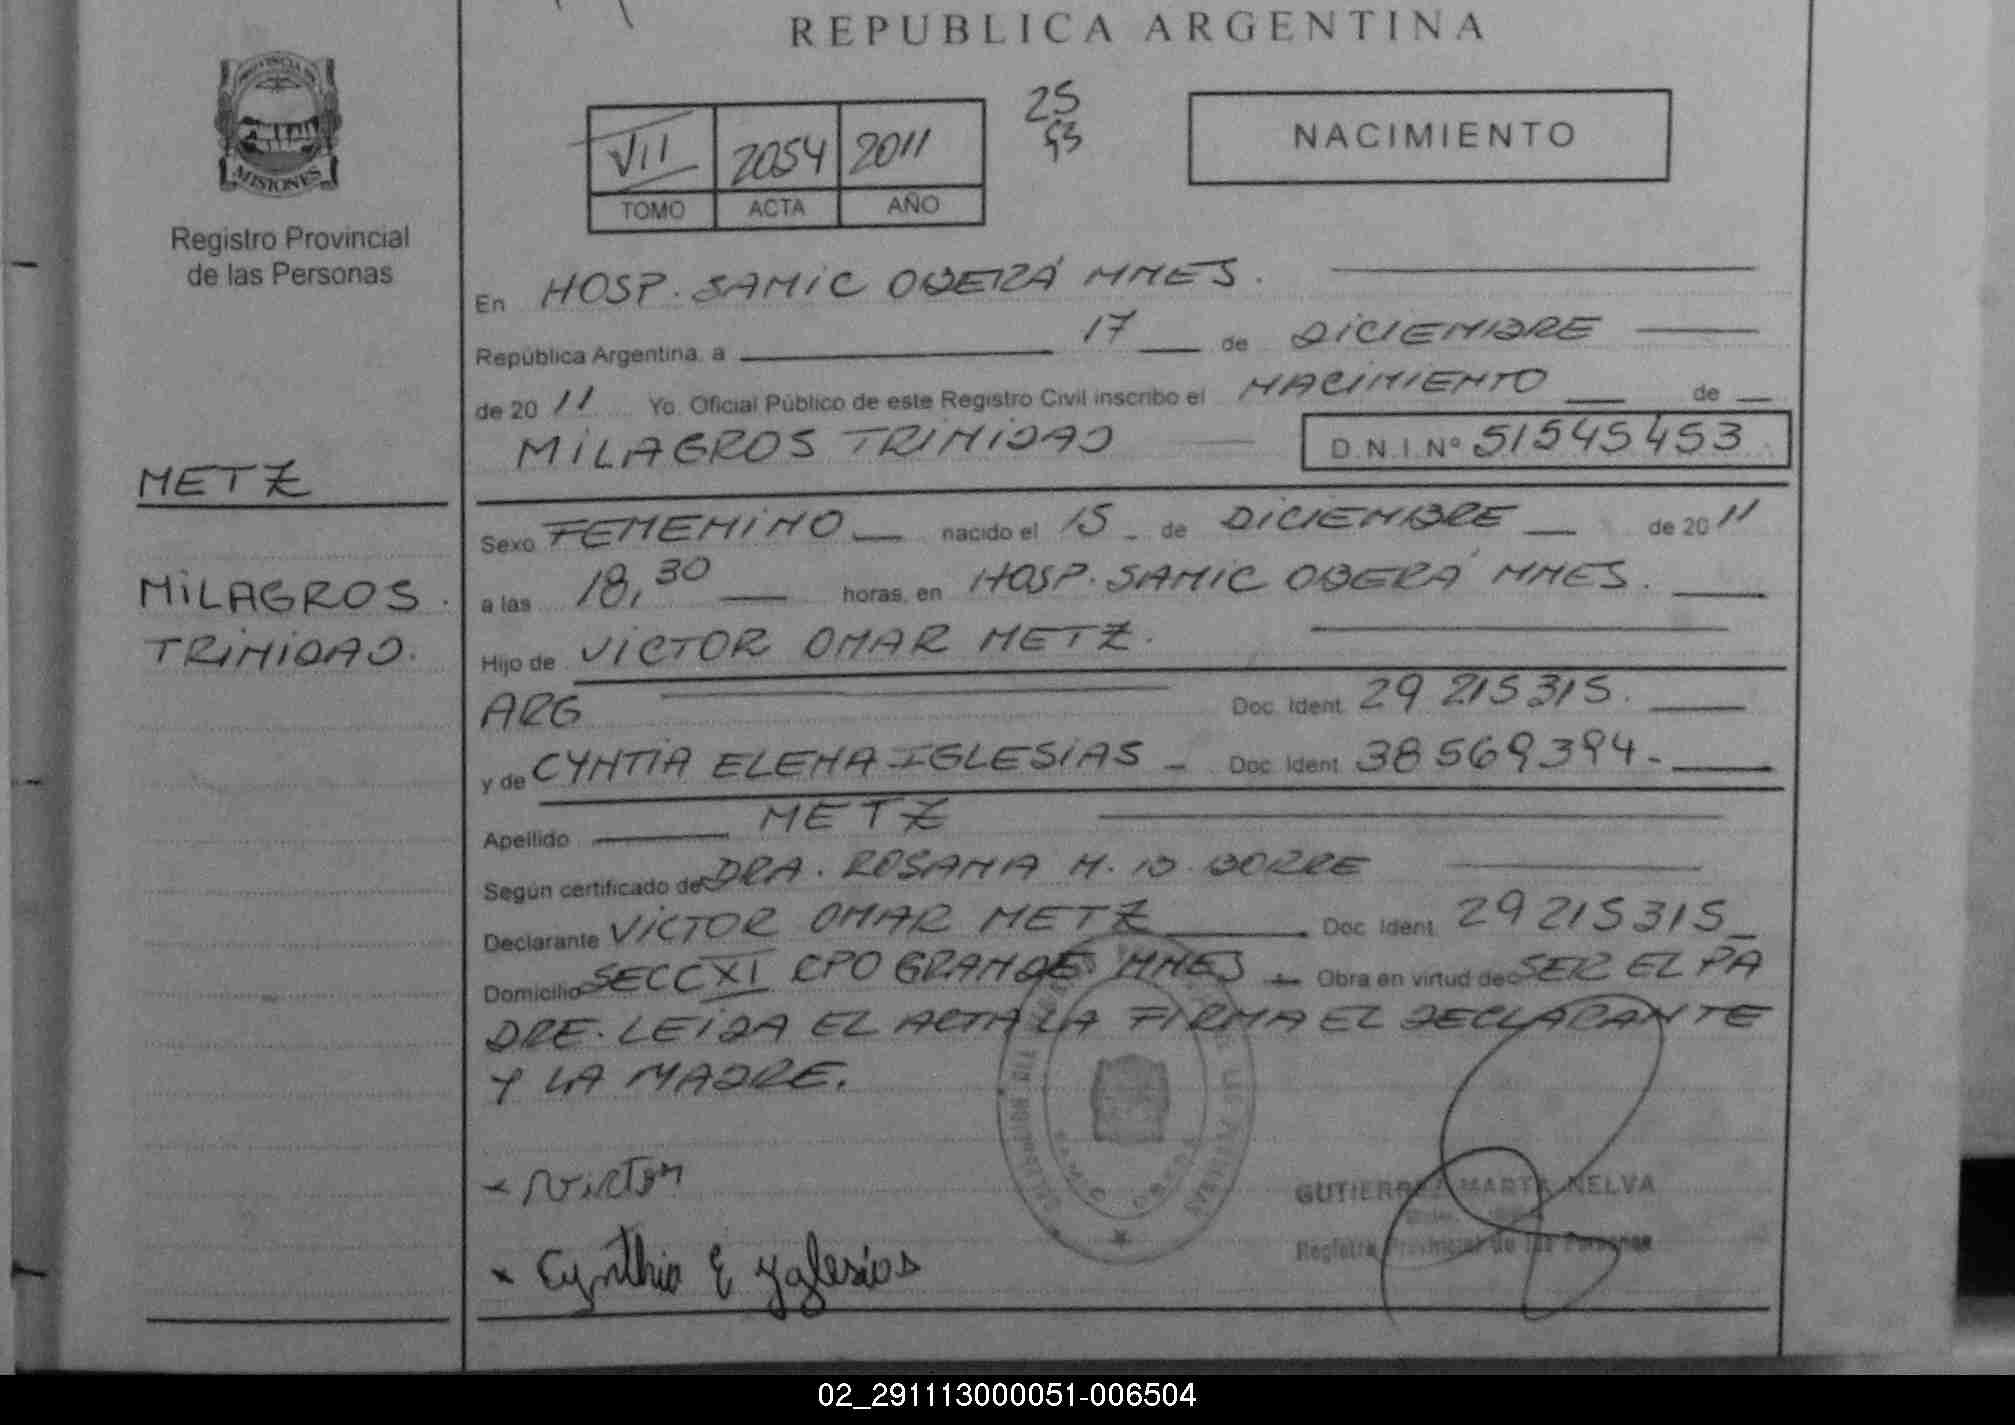 REPUBLICA ARGENTINA
PROVINCIA DE
MISIONES
Registro Provincial
de las Personas
VII 2054 2011
TOMO ACTA AÑO
25
53
NACIMIENTO
En HOSP. SAMIC OBERÁ MNES.
República Argentina, a 17 de DICIEMBRE
de 20 11 Yo, Oficial Público de este Registro Civil inscribo el NACIMIENTO de
MILAGROS TRINIDAD D.N.I. Nº 51545453
METZ
MILAGROS.
TRINIDAD.
Sexo FEMENINO nacido el 15 de DICIEMBRE de 20 11
a las 18,30 horas, en HOSP. SAMIC OBERÁ MNES.
Hijo de VICTOR OMAR METZ.
ARG Doc. Ident. 29 215315.
y de CYNTIA ELENA IGLESIAS Doc. Ident. 38569394.
Apellido METZ
Según certificado de DRA. ROSANA M. D. BORRE
Declarante VICTOR OMAR METZ Doc. Ident. 29 215315
Domicilio SECC XI CPO GRANDE MNES Obra en virtud de SER EL PA
DRE. LEIDA EL ACTA LA FIRMA EL DECLARANTE
Y LA MADRE.
x Victor
x Cynthia E Yglesias
GUTIERREZ MARTA NELVA
Registro Provincial de las Personas
02_291113000051-006504